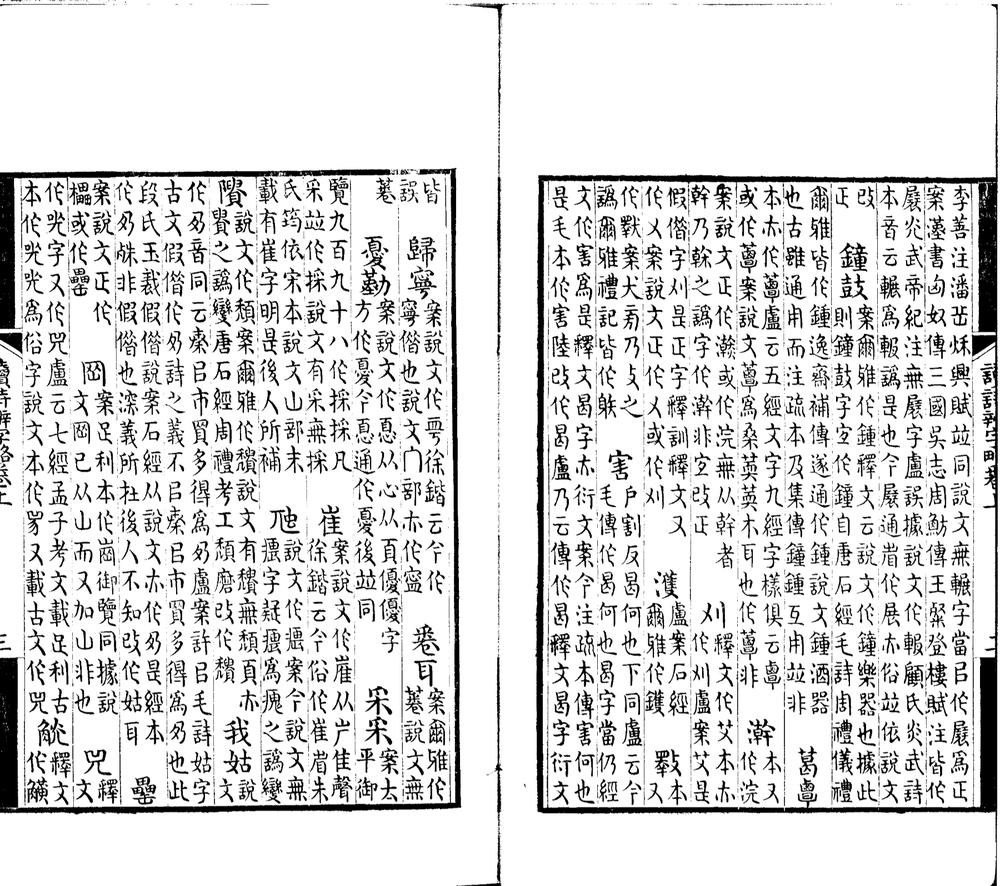 李善注潘岳秌興賦竝同說文無輾字當㠯作㞡爲正
案漢書匈奴傳三國吳志周魴傳王粲登樓賦注皆作
㞡炎武帝紀注無㞡字盧誤據說文作報顧氏炎武詩
本音云輾爲報譌是也今㞡通省作展亦俗竝依說文
改正 鐘鼓 案爾雅作鍾釋文云說文作鐘樂器也據此則鐘鼓字宜作鐘自唐石經毛詩周禮儀禮
爾雅皆作鍾逸齋補傳遂通作鍾說文鍾酒器也古雖通用而注疏本及集傳鐘鍾互用竝非 葛覃
本亦作蕈盧云五經文字九經字樣俱云覃或作蕈案說文蕈爲桑葚木耳也作蕈非 澣 本又作浣
案說文正作瀚或作浣無从幹者幹乃榦之譌字作澣非宜改正 刈 釋文作艾本亦作刈盧案艾是
假借字刈是正字釋訓釋文又作乂案說文正作乂或作刈 濩 盧案石經爾雅作鑊 斁 本又
作㪤案犬旁乃攴之譌爾雅禮記皆作射 害 戶割反曷何也下同盧云今毛傳作曷何也曷字當仍經
文作害爲是釋文曷字亦衍文案今注疏本傳害何也
是毛本作害陸改作曷盧乃云傳作曷釋文曷字衍文
皆誤 歸寧 案說文作寍徐鍇云今作寧借也說文門部亦作寍 卷耳 案爾雅作菤說文無
菤 憂勤 案說文作惪从心从頁優優字方作憂今惪通作憂後竝同 采采 案太平御
覽九百九十八作採採凡采竝作採說文有采無採 崔 案說文作嵟从屵隹聲徐鍇云今俗作崔省朱
氏筠依宋本說文山部末載有崔字明是後人所補 虺 說文作㾯案今說文無㾯字疑㾯爲瘣之譌變
隤 說文作穨案爾雅作穨說文有穨無頹頁亦䝿之譌變唐石經周禮考工頹磨改作穨 我姑 說文
作夃音同云秦㠯市買多得爲夃盧案許㠯毛詩姑字
古文假借作夃詩之義不㠯秦㠯市買多得爲夃也此
段氏玉裁假借說案石經从說文亦作夃是經本作夃非假借也深義所在後人不知改作姑耳 罍
案說文正作櫑或作罍 岡 案足利本作崗御覽同據說文岡已从山而又加山非也 兕 釋文
作兕字又作兕盧云七經孟子考文載足利古
本作兕爲俗字說文本作𤉡又載古文作兕 觥 釋文作觵
讀詩辨字略卷上 三